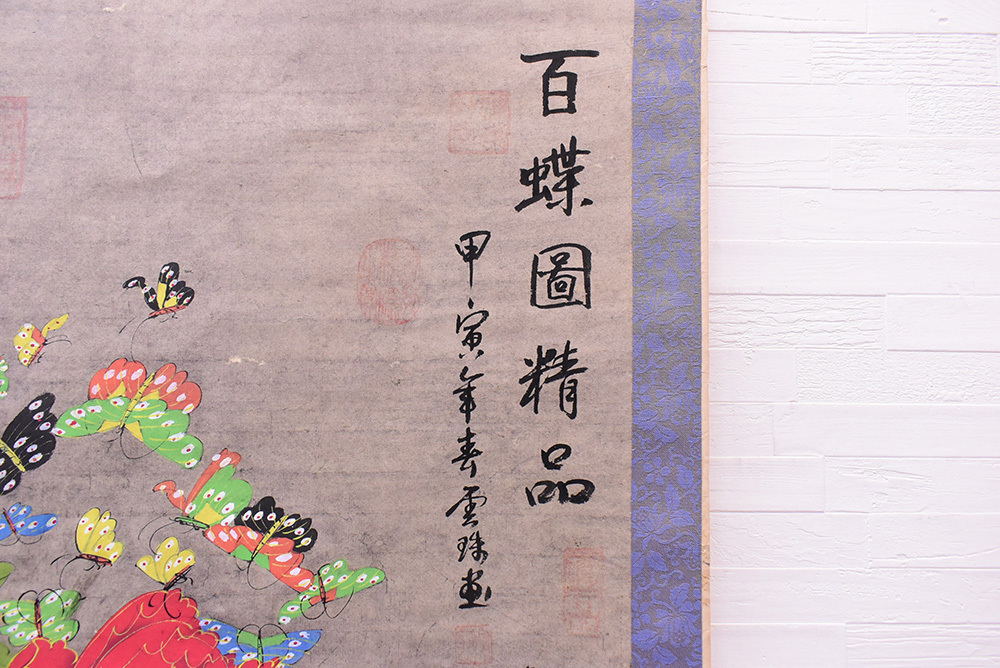 百蝶圖精品
甲寅年春雲珠畫